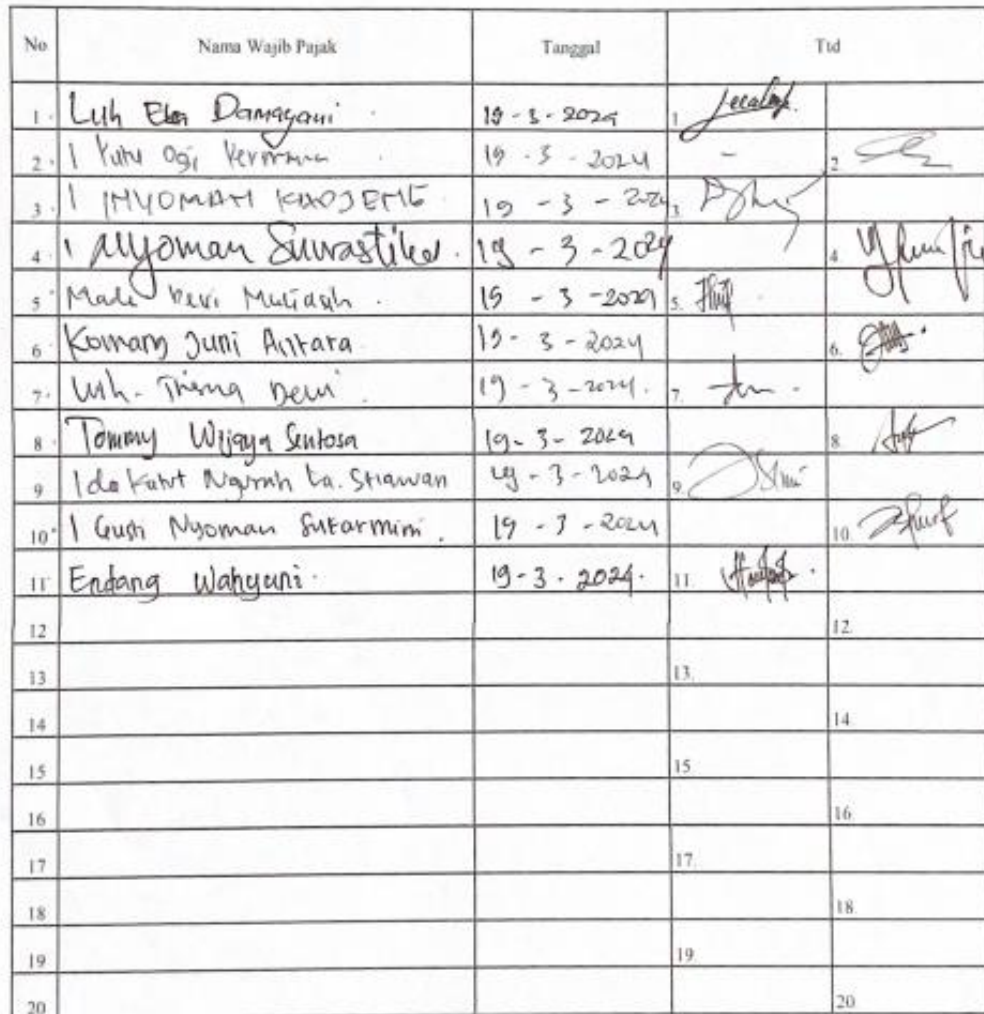 No Nama Wajib Pajak Tanggal Ttd
1. Luh Eka Damayani 19-3-2024 1.
2. I Putu Ogi 19-3-2024 - 2.
3. I NYOMAN 19-3-2024 3.
4. I Nyoman Suwastika 19-3-2024 4.
5. Made Devi Muliasih 19-3-2024 5.
6. Komang Juni Antara 19-3-2024 6.
7. Luh Trisna Dewi 19-3-2024. 7.
8. Tommy Wijaya Sentosa 19-3-2024 8.
9 Ida Ketut Ngurah 19-3-2024 9.
10. I Gusti Nyoman Sukarmini 19-3-2024 10.
11 Endang Wahyuni 19-3-2024. 11.
12 12.
13 13.
14 14.
15 15.
16 16.
17 17.
18 18.
19 19.
20 20.